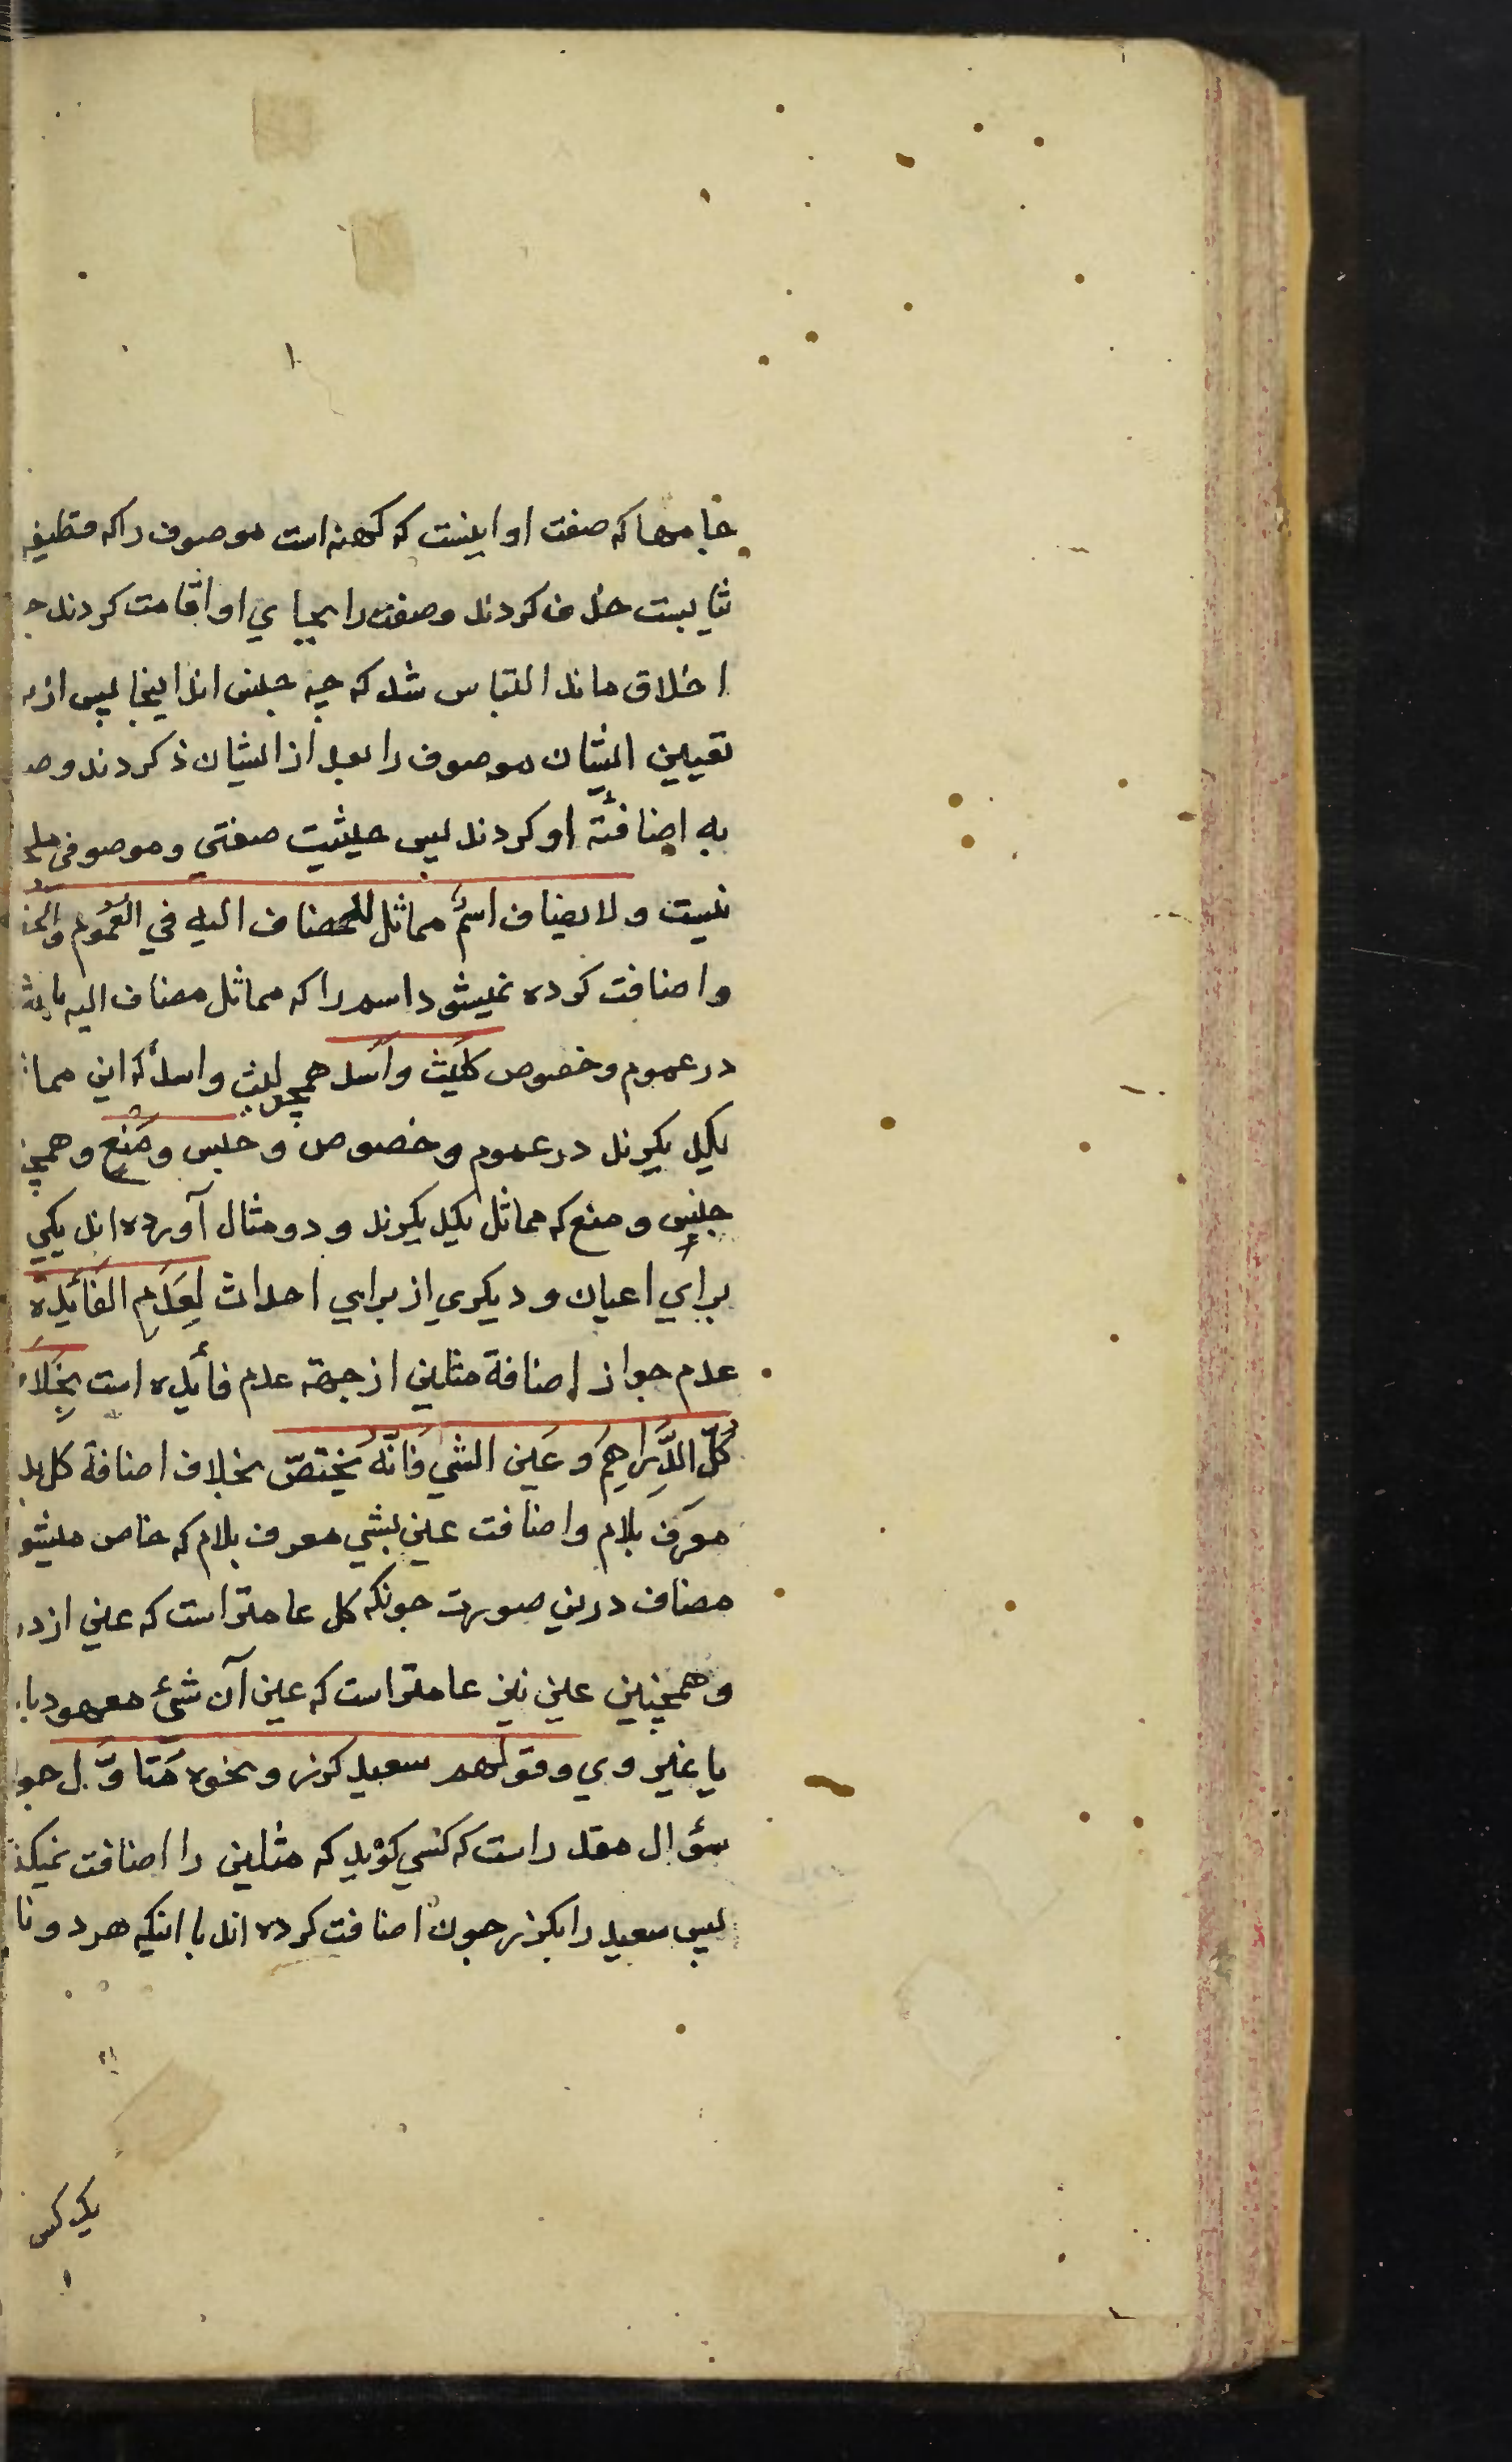 جامها که صفت او اینست که کهنه است موصوف را که قطیفه
ثیابست حذف کردند وصفت را بجای او اقامت کردند
اخلاق ماند التباس شد که چه جنس اند اینجا پس از
تعیین ایشان موصوف را بعد از ایشان ذکر کردند و
به اضافئة او کردند پس حیثیت صفتی و موصوفی
نیست ولا یضاف اسمٌ مماثل للمضاف الیه فی العُمُوم
واضافت کرده نمیشود اسم را که مماثل مضاف الیه
در عموم و خصوص کلَیث واَسد همچو لیث واسد که این
یکدیکرند در عموم و خصوص و حبس ومَنع
حبس و منع که مماثل یکدیکرند و دو مثال آورده اند یکی
برای اعیان و دیکری از برای احداث لِعَدَمِ الفَائِدة
عدم جواز اضافة مثلین از جهة عدم فائده است
کُلّ الدَّرَاهِم وَعَین الشی فَانّه یَختصّ بخلاف اضافة کل
معرف بلام واضافت عین بشی معرف بلام که خاص
مضاف درین صورت چونکه کل عامتر است که عین از
وهمچنین عین نیز عامتر است که عین آن شیء معهود
یا غیر وی وقولهم سعید کرز ونحوه مُتاوّل
سؤال مقدر است که کسی کوید که مثلین را اضافت
پس سعید را بکرز چون اضافت کرده اند با اینکه هر دو
یک کس